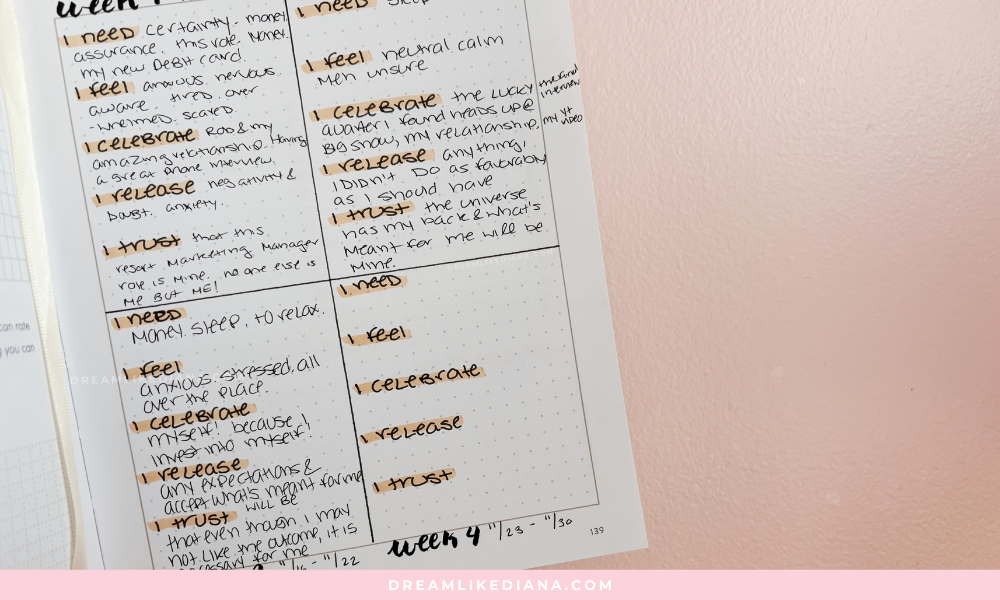 week
I need certainty. money.
assurance. this role. Money.
my new Debit card.
I feel anxious. nervous.
aware. tired. over
-whelmed. scared.
I celebrate Roo & my
amazing relationship. Having
a great phone interview.
I release negativity &
Doubt. anxiety.
I trust that this
resort Marketing Manager
role is Mine. no one else is
Me BUT ME!
I need sleep
I feel neutral calm
Meh unsure
I celebrate the lucky
quarter I found heads up @
Big Show, my relationship,
the final
interview
my yt
video
I release anything,
I Didn't Do as favorably
as I should have
I trust the universe
has my back & what's
Meant for me will be
Mine.
I need
Money. Sleep. to relax.
I feel
anxious. stressed, all
over the place.
I celebrate
myself! because I
invest into myself!
I release
any expectations &
accept what's meant for me
will be
I trust
that even though I may
not like the outcome, it is
necessary for me
11/22
I need
I feel
I celebrate
I release
I trust
week 4 11/23 - 11/30
139
can rate
you can
DREAMLIKEDIANA.COM
DREAMLIKEDIANA.COM